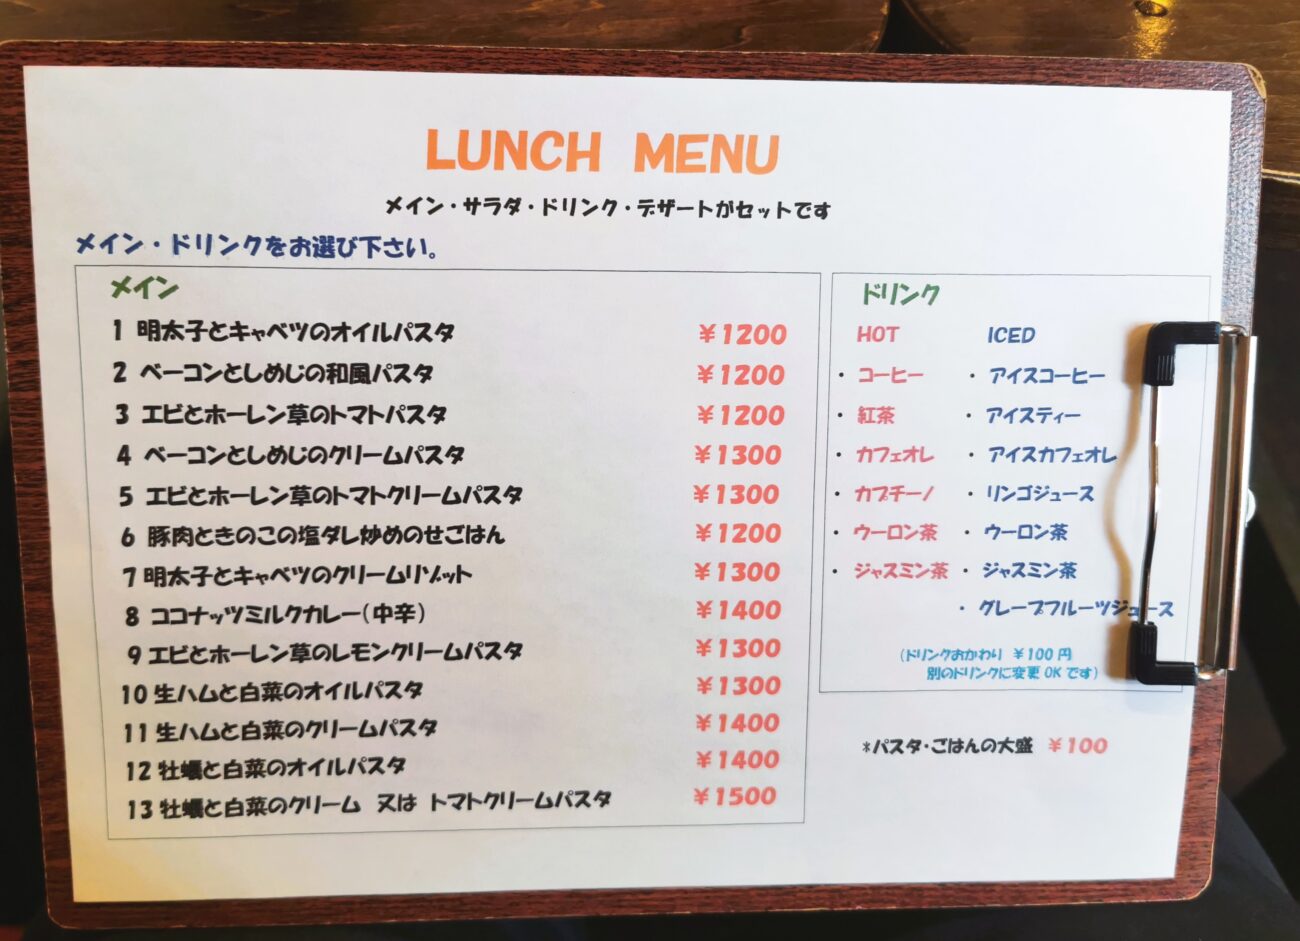 LUNCH MENU
メイン・サラダ・ドリンク・デザートがセットです
メイン・ドリンクをお選び下さい。
メイン
1 明太子とキャベツのオイルパスタ ￥1200
2 ベーコンとしめじの和風パスタ ￥1200
3 エビとホーレン草のトマトパスタ ￥1200
4 ベーコンとしめじのクリームパスタ ￥1300
5 エビとホーレン草のトマトクリームパスタ ￥1300
6 豚肉ときのこの塩ダレ炒めのせごはん ￥1200
7 明太子とキャベツのクリームリゾット ￥1300
8 ココナッツミルクカレー（中辛） ￥1400
9 エビとホーレン草のレモンクリームパスタ ￥1300
10 生ハムと白菜のオイルパスタ ￥1300
11 生ハムと白菜のクリームパスタ ￥1400
12 牡蠣と白菜のオイルパスタ ￥1400
13 牡蠣と白菜のクリーム 又は トマトクリームパスタ ￥1500
ドリンク
HOT ICED
・ コーヒー ・ アイスコーヒー
・ 紅茶 ・ アイスティー
・ カフェオレ ・ アイスカフェオレ
・ カプチーノ ・ リンゴジュース
・ ウーロン茶 ・ ウーロン茶
・ ジャスミン茶 ・ ジャスミン茶
・ グレープフルーツジュース
（ドリンクおかわり ￥100 円
別のドリンクに変更 OK です）
*パスタ・ごはんの大盛 ￥100